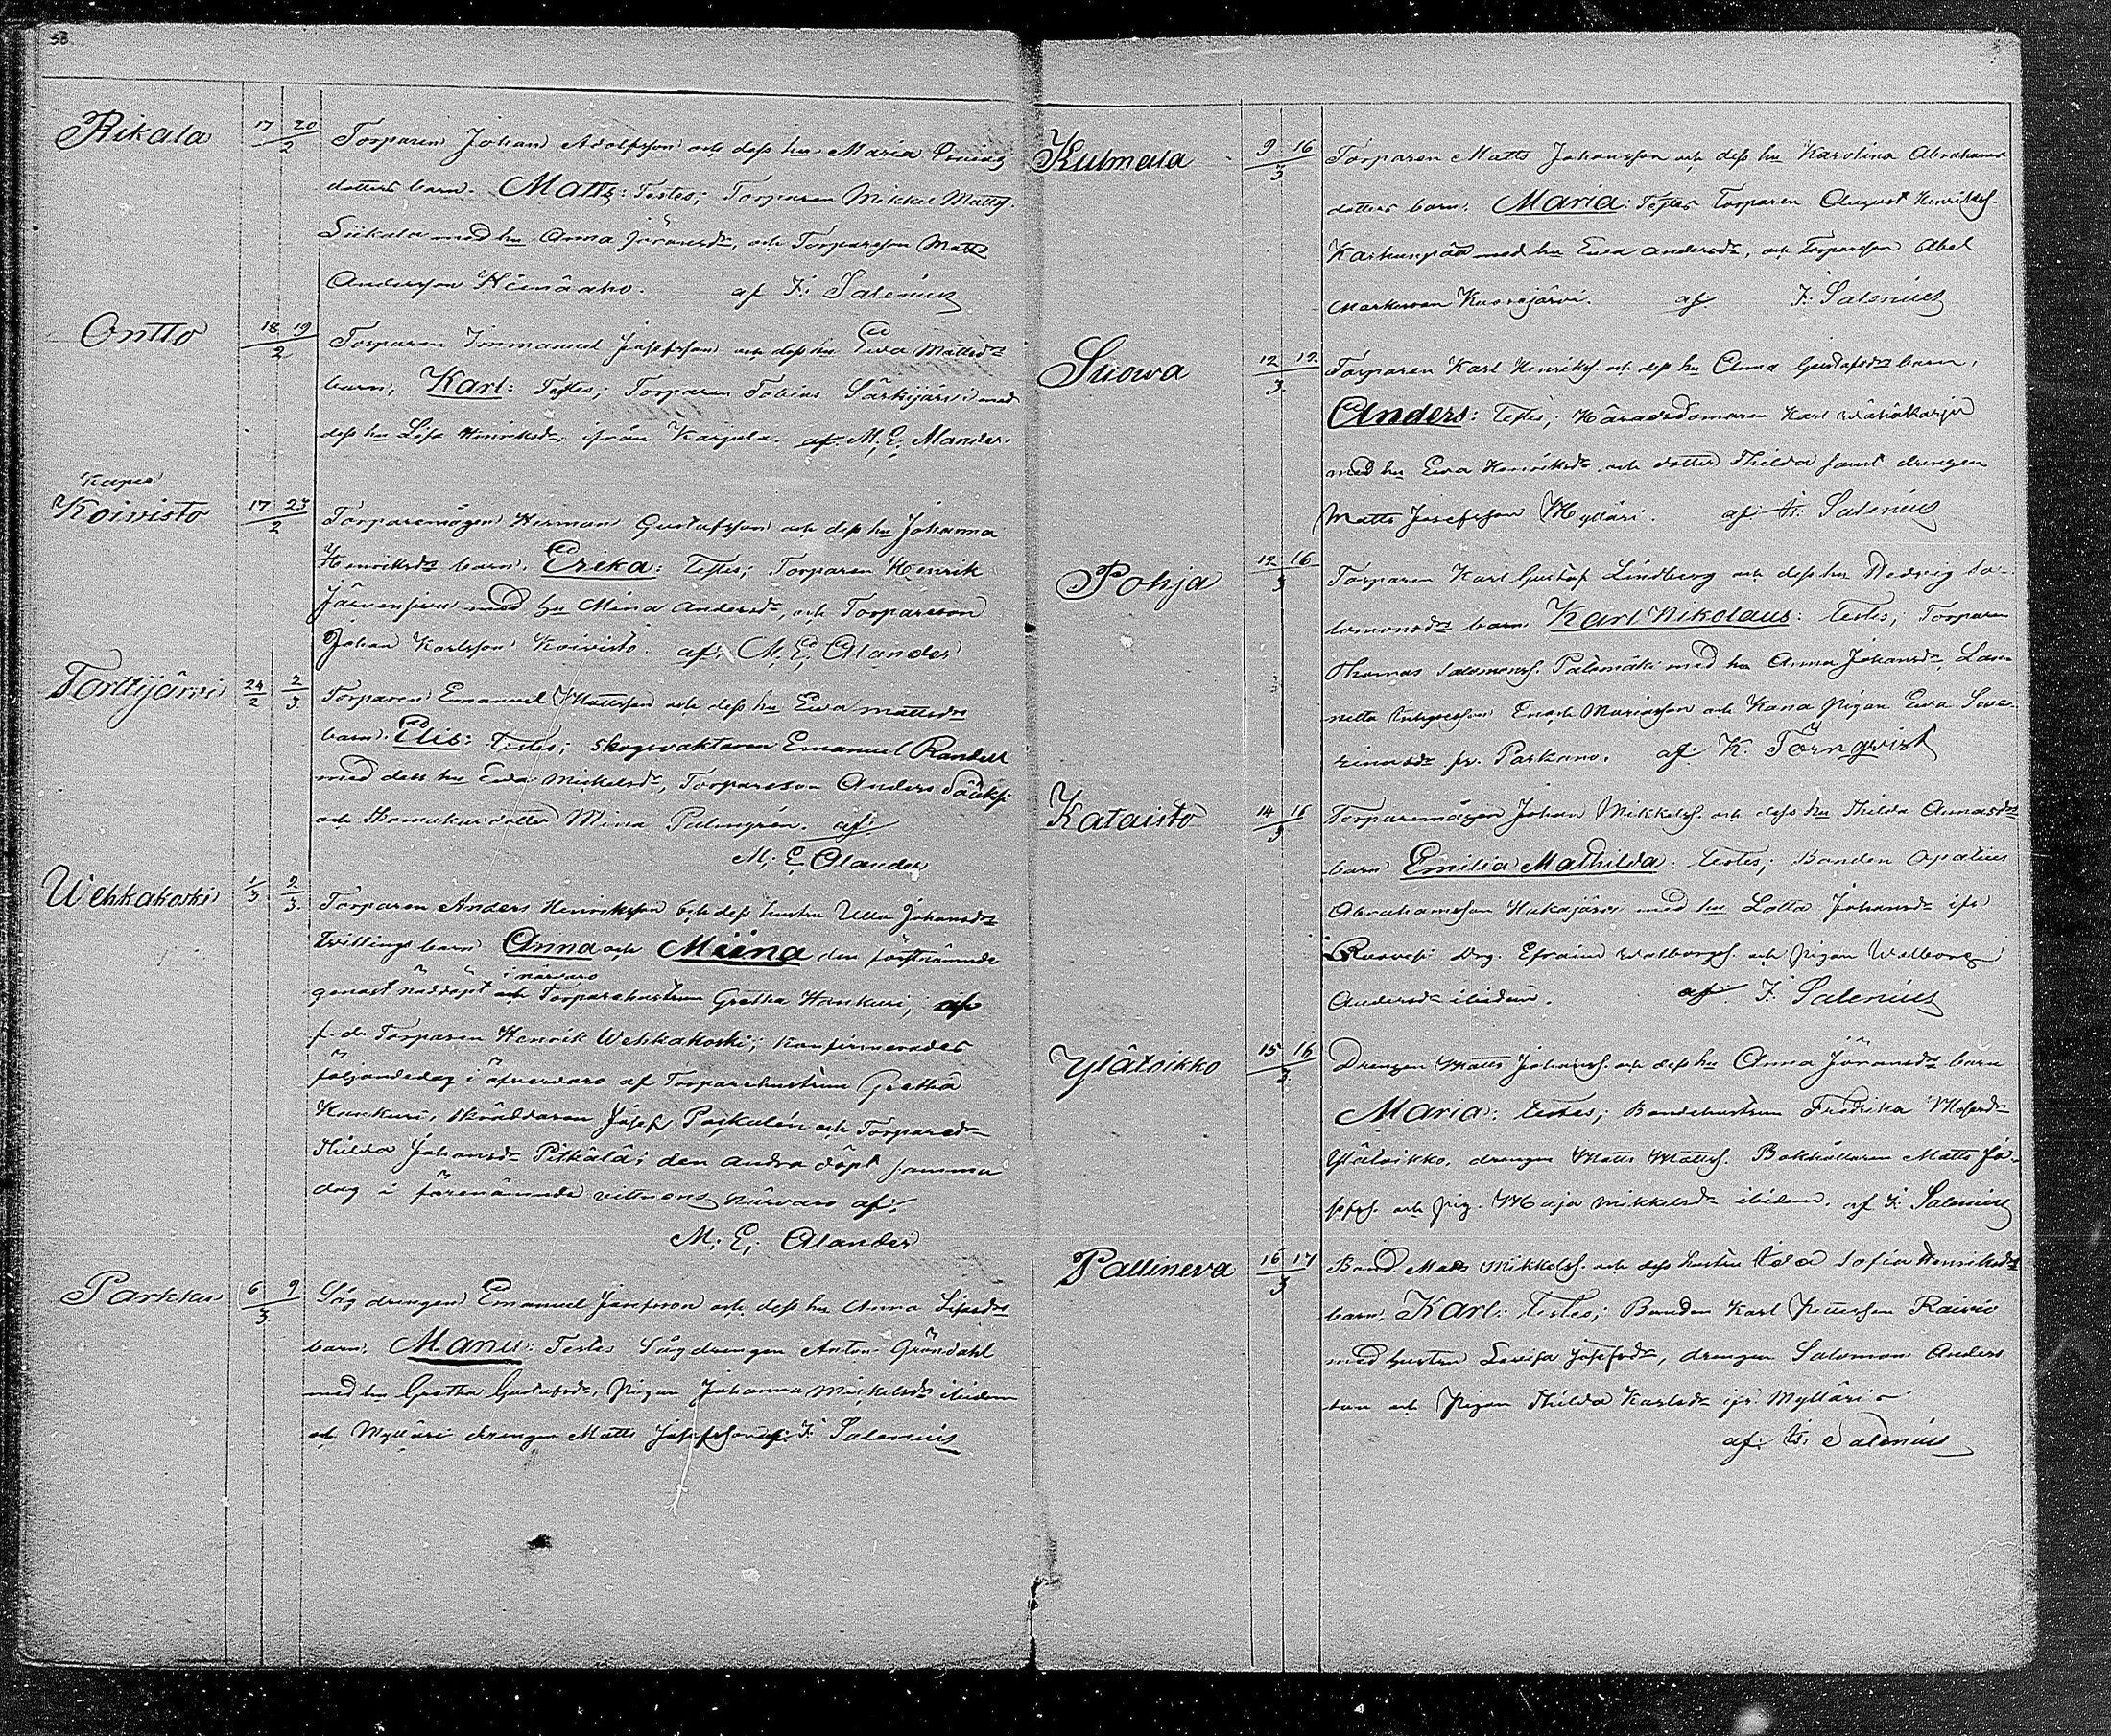 58
Rikala 17 20/2 Torparen Johan Adolfsson och dess hu Maria
dotters barn. Matts: Testes; Torparen Mikkel Matts.
Siikala med hu Anna Jöransdr, och Torpareson Matts
Andersson Heinäaho. af F. Salenius
Ontto 18 19/2 Torparen Immanuel Josefsson och dess hu Ewa Mattsdr
barn, Karl: Testes; Torparen Tobias Särkijärvi med
dess hu Lisa Henriksdr, ifrån Karjula. af M. E. Alander.
Koivisto 17 23/2 Torparemågen Herman Gustafsson och dess hu Johanna
Henriksdr barn. Erika: Testes; Torparen Henrik
Järvensivu med hu Mina Andersdr, och Torpareson
Johan Karlsson Koivisto. af; M. E. Alander
Torttijärvi 24/2 2/3 Torparen Emanuel Mattsson och dess hu Ewa Mattsdr
barn. Elis: testes; Skogsvaktaren Emanuel Randell
med dess hu Ewa Mickelsdr, Torpareson Anders
och dotter Mina Palmgrén. af;
M. E. Alander
Wehkakoski 1/3 2/3 Torparen Anders Henriksson och dess hustru Ulla Johansdr
Tvillings barn Anna och Miina den förstnämnde
i närvaro
genast nöddöpt och Torparehustrun Gretha Kankuri; af
f. d. Torparen Henrik Wehkakoski; Konfirmerades
följande dag i öfvervaro af Torparehustrun Gretha
Kankuri, Skräddaren Josef Paskalén och Torparedr
Hilda Johansdr Pitkälä; den andra döpt samma
dag i förenämnde vittnens närvaro af;
M. E. Alander
Parkku 6 9/3 Sågdrengen Emanuel Josefsson och dess hu Anna Lisasdr
barn. Manu: Testes Sågdrengen Anton Gröndahl
med hu Gretha Gustafsdr, Pigan Johanna Mickelsdr ibidem
och Mylläri drengen Matts Josefsson af: F. Salenius
Kulmala 9 16/3 Torparen Matts Johansson och dess hu Karolina Abrahams
dotters barn. Maria: Testes Torparen August Henrikss.
Karhunpää med hu Ewa Andersdr, och Torpareson Abel
Markusson Kuorejärvi. af F. Salenius
Suowa 12 12/3 Torparen Karl Henrikss. och dess hu Anna Gustafsdr barn.
Anders: Testes; Häradsdomaren Karl Wähäkarja
med hu Ewa Henriksdr och dotter Thilda samt drengen
Matts Josefsson Mylläri. af: F. Salenius
Pohja 12 16/3 Torparen Karl Gustaf Lindberg och dess hu Hedvig Sa-
lomonsdr barn Karl Nikolaus: testes; Torparen
Thomas Salomonss. Palomäki med hu Anna Johansdr,
Enoch Mariasson och Kana Pigan Ewa Seve-
rinusdr fr. Parkano. af K. Törnqvist
Kataisto 14 16/3 Torparemågen Johan Mikkelss. och dess hu Hilda Annasdr
barn Emilia Mathilda: testes; Bonden Apatius
Abrahamsson Hukajärvi med hu Lotta Johansdr ifr
Ruovesi Drg. Efraim Walborgs. och Pigan Walborg
Andersdr ibidem. af F. Salenius
Ylätoikko 15 16/3 Drengen Matts Johanss. och dess hu Anna Jöransdr barn
Maria: testes; Bondehustrun Fredrika Mosesdr
Ylätoikko, drengen Matts Mattss. Bokhållaren Matts Jo-
sefss. och pig. Maja Mikkelsdr ibidem. af F. Salenius
Pallineva 16 17/3 Bond. Mats Mikkelss. och dess hustru Ida Sofia Henriksdr
barn. Karl: testes; Bonden Karl Pettersson Raivio
med hustru Lovisa Josefsdr, drengen Salomon Anders
son och Pigan Hilda Karlsdr ifr. Mylläri
af: F. Salenius